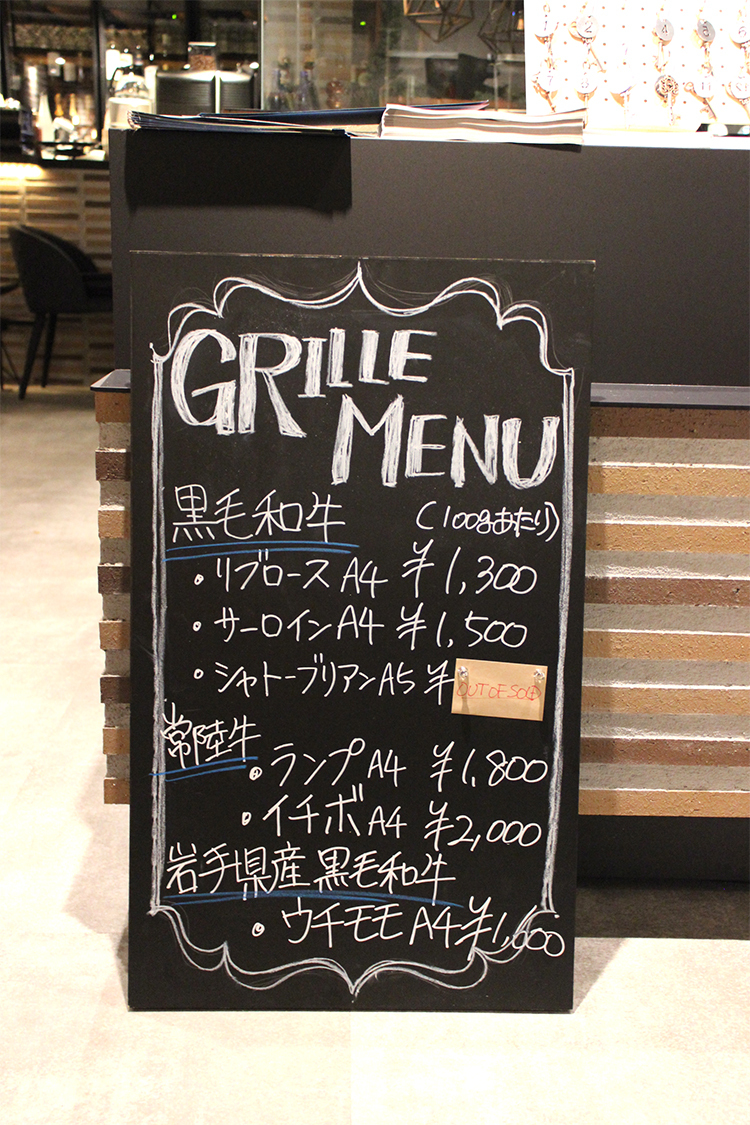 GRILLE
MENU
黒毛和牛 (100gあたり)
・リブロース A4 ¥1,300
・サーロイン A4 ¥1,500
・シャトーブリアン A5 ¥ OUT OF SO
常陸牛
・ランプ A4 ¥1,800
・イチボ A4 ¥2,000
岩手県産 黒毛和牛
・ウチモモ A4 ¥1,000